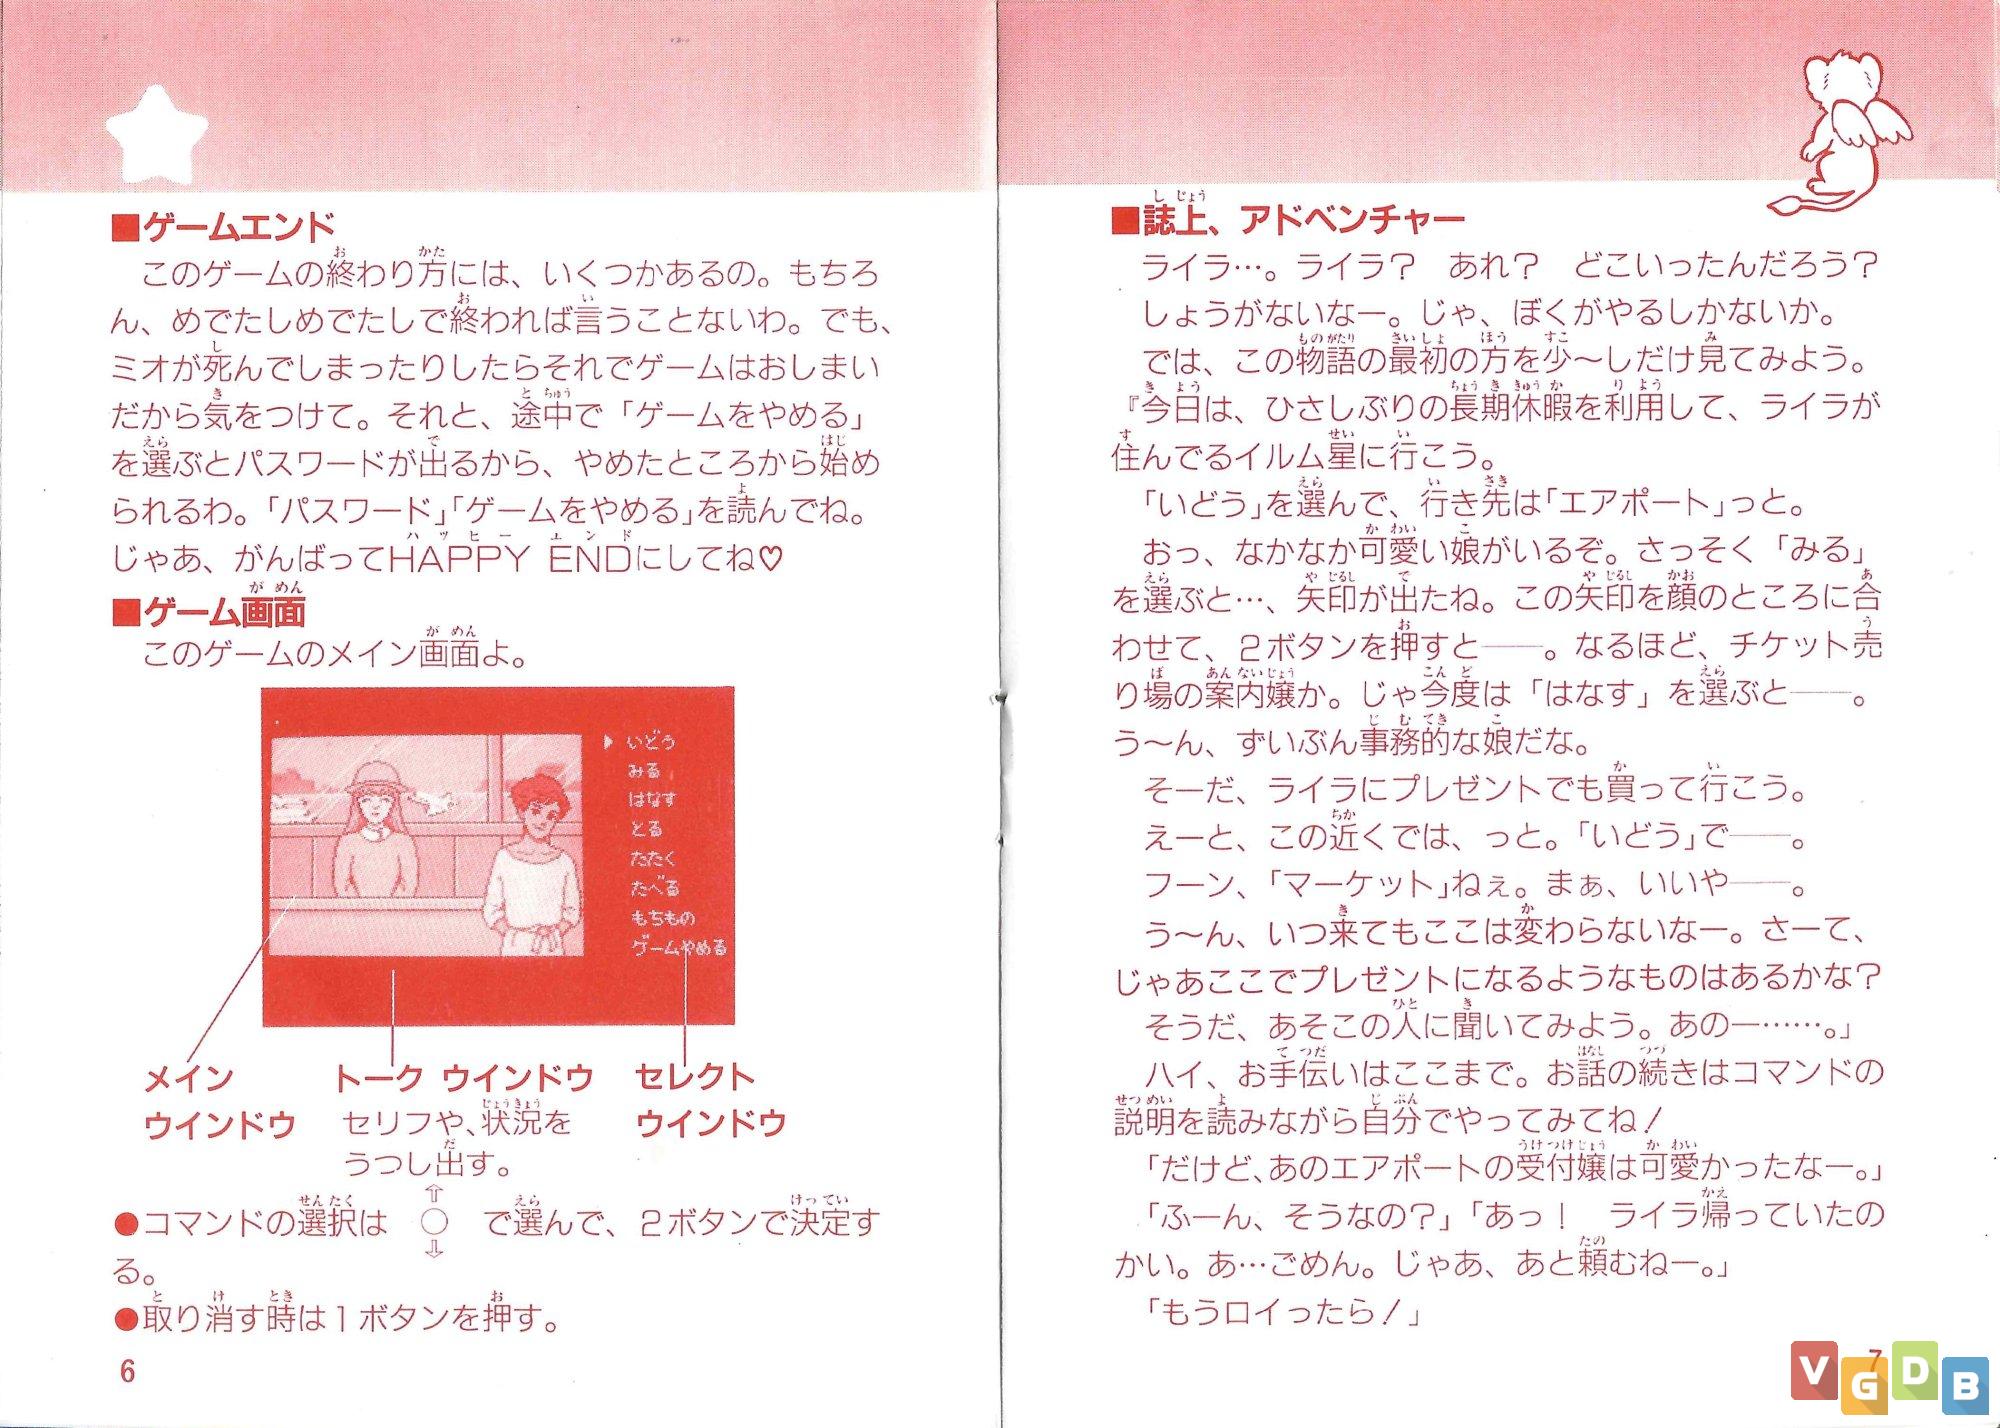 ■ゲームエンド
このゲームの終わり方には、いくつかあるの。もちろ
ん、めでたしめでたしで終われば言うことないわ。でも、
ミオが死んでしまったりしたらそれでゲームはおしまい
だから気をつけて。それと、途中で「ゲームをやめる」
を選ぶとパスワードが出るから、やめたところから始め
られるわ。「パスワード」「ゲームをやめる」を読んでね。
じゃあ、がんばってHAPPY ENDにしてね♡
■ゲーム画面
このゲームのメイン画面よ。
いどう
みる
はなす
とる
たたく
たべる
もちもの
ゲームやめる
メイン
ウインドウ
トーク ウインドウ
セリフや、状況を
うつし出す。
セレクト
ウインドウ
●コマンドの選択は ⇧○⇩ で選んで、2ボタンで決定す
る。
●取り消す時は1ボタンを押す。
6
■誌上、アドベンチャー
ライラ…。ライラ? あれ? どこいったんだろう?
しょうがないなー。じゃ、ぼくがやるしかないか。
では、この物語の最初の方を少〜しだけ見てみよう。
『今日は、ひさしぶりの長期休暇を利用して、ライラが
住んでるイルム星に行こう。
「いどう」を選んで、行き先は「エアポート」っと。
おっ、なかなか可愛い娘がいるぞ。さっそく「みる」
を選ぶと…、矢印が出たね。この矢印を顔のところに合
わせて、2ボタンを押すと――。なるほど、チケット売
り場の案内嬢か。じゃ今度は「はなす」を選ぶと――。
う〜ん、ずいぶん事務的な娘だな。
そーだ、ライラにプレゼントでも買って行こう。
えーと、この近くでは、っと。「いどう」で――。
フーン、「マーケット」ねぇ。まぁ、いいや――。
う〜ん、いつ来てもここは変わらないなー。さーて、
じゃあここでプレゼントになるようなものはあるかな?
そうだ、あそこの人に聞いてみよう。あのー……。」
ハイ、お手伝いはここまで。お話の続きはコマンドの
説明を読みながら自分でやってみてね!
「だけど、あのエアポートの受付嬢は可愛かったなー。」
「ふーん、そうなの?」「あっ! ライラ帰っていたの
かい。あ…ごめん。じゃあ、あと頼むねー。」
「もうロイったら!」
7
VGDB